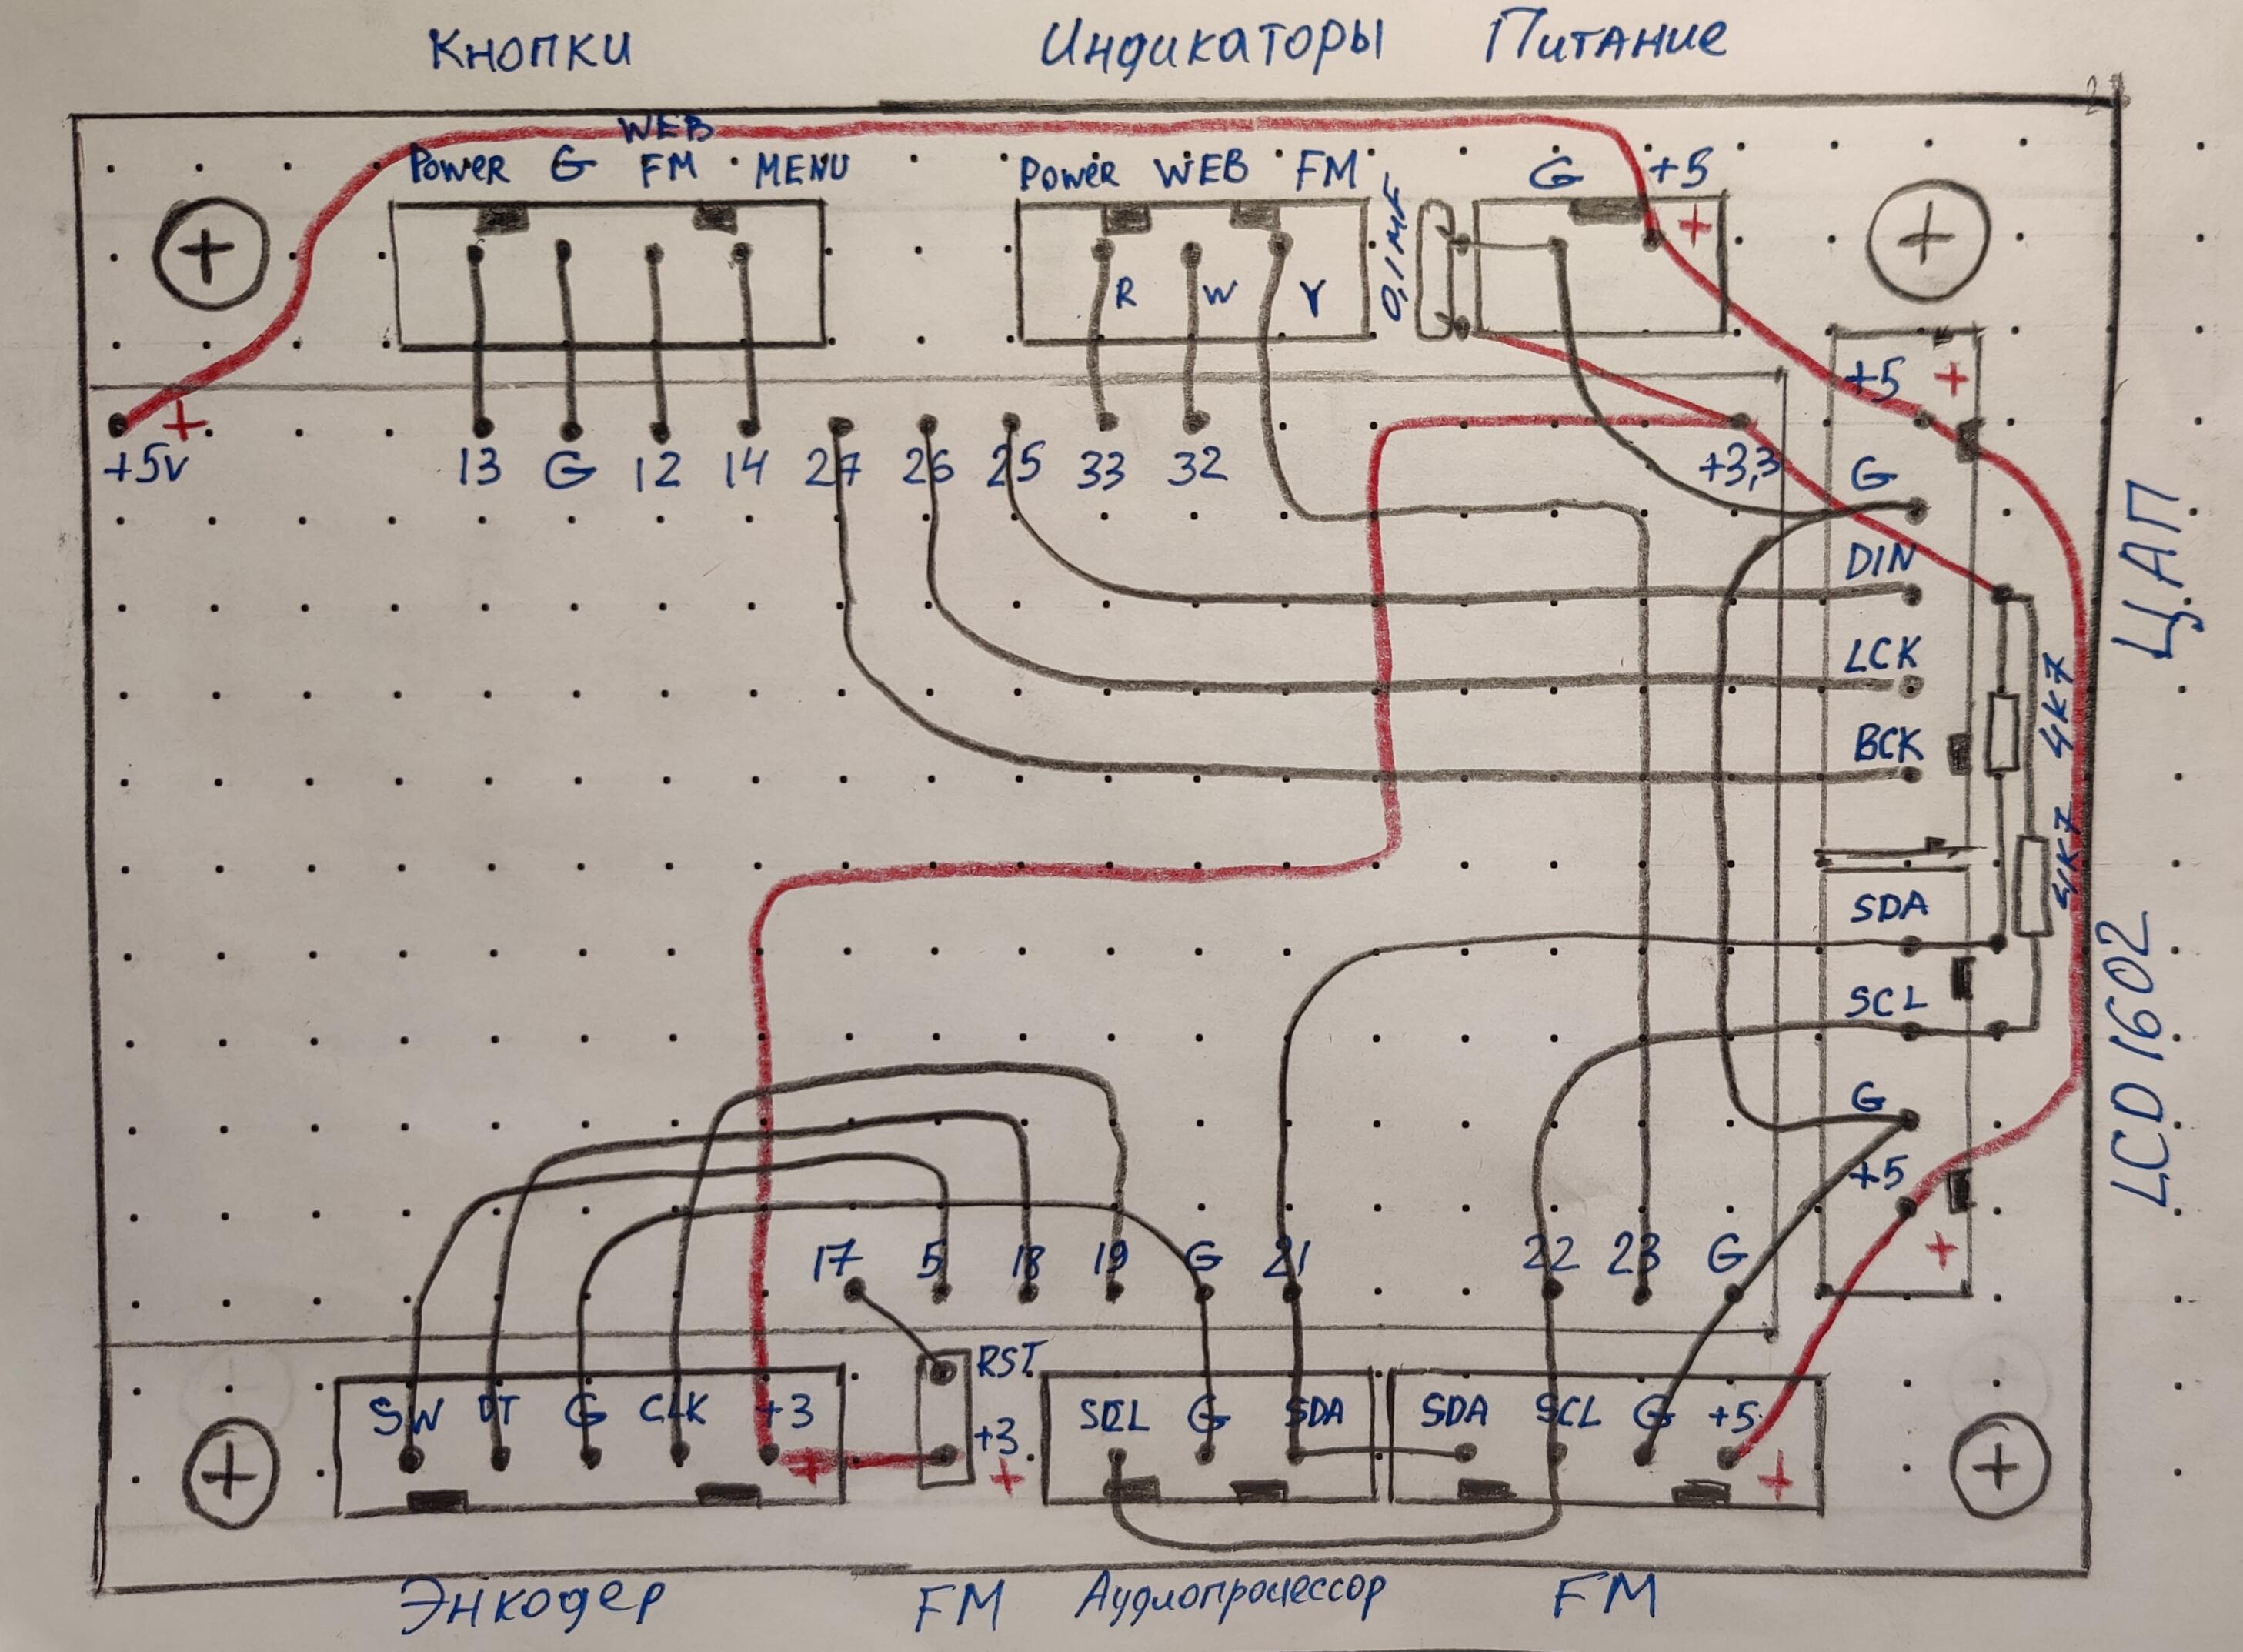 Кнопки Индикаторы Питание
WEB
Power G FM MENU Power WEB FM G +5
+
R W Y 0,1МF
+5 +
+
+5V 13 G 12 14 27 26 25 33 32 +3,3 G
DIN
ЦАП
LCK
4К7
BCK
4К7
SDA
SCL
LCD 1602
G
+5
17 5 18 19 G 21 22 23 G +
RST
SW DT G CLK +3 SCL G SDA SDA SCL G +5
+3
+ + +
Энкодер FM Аудиопроцессор FM